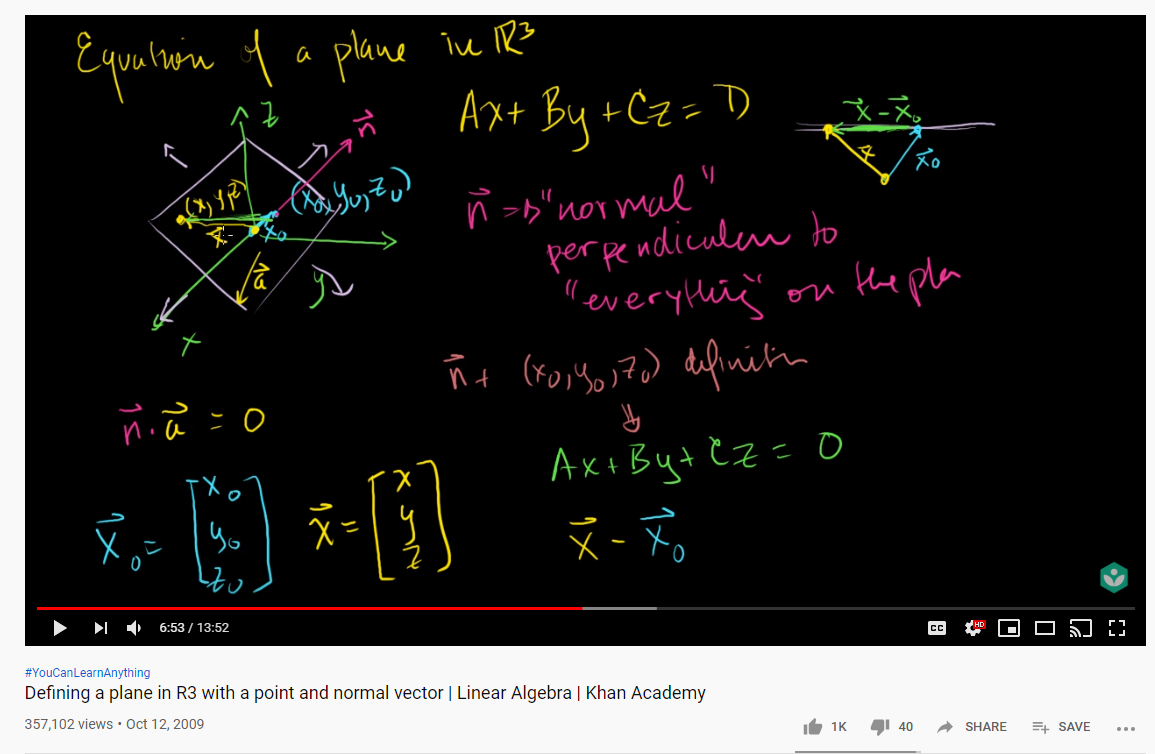 Equation of a plane in ℝ³
Ax + By + Cz = D
z
n⃗
(x, y, z)
(x₀, y₀, z₀)
x⃗
x₀
a⃗
y
x
x⃗ - x⃗₀
x⃗
x⃗₀
n⃗ → "normal"
perpendicular to
"everything" on the plan
n⃗ + (x₀, y₀, z₀) definition
⇓
Ax + By + Cz = D
n⃗ · a⃗ = 0
x⃗₀ = [x₀ y₀ z₀]
x⃗ = [x y z]
x⃗ - x⃗₀
6:53 / 13:52
CC
HD
#YouCanLearnAnything
Defining a plane in R3 with a point and normal vector | Linear Algebra | Khan Academy
357,102 views • Oct 12, 2009
1K
40
SHARE
SAVE